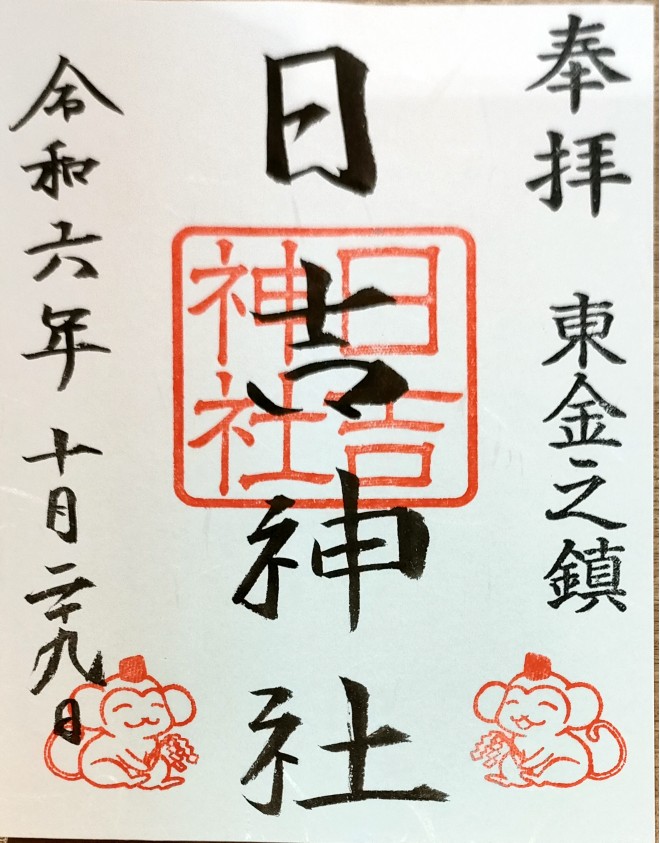 奉拝 東金之鎮
日吉神社
日吉
神社
令和六年 十月二十九日